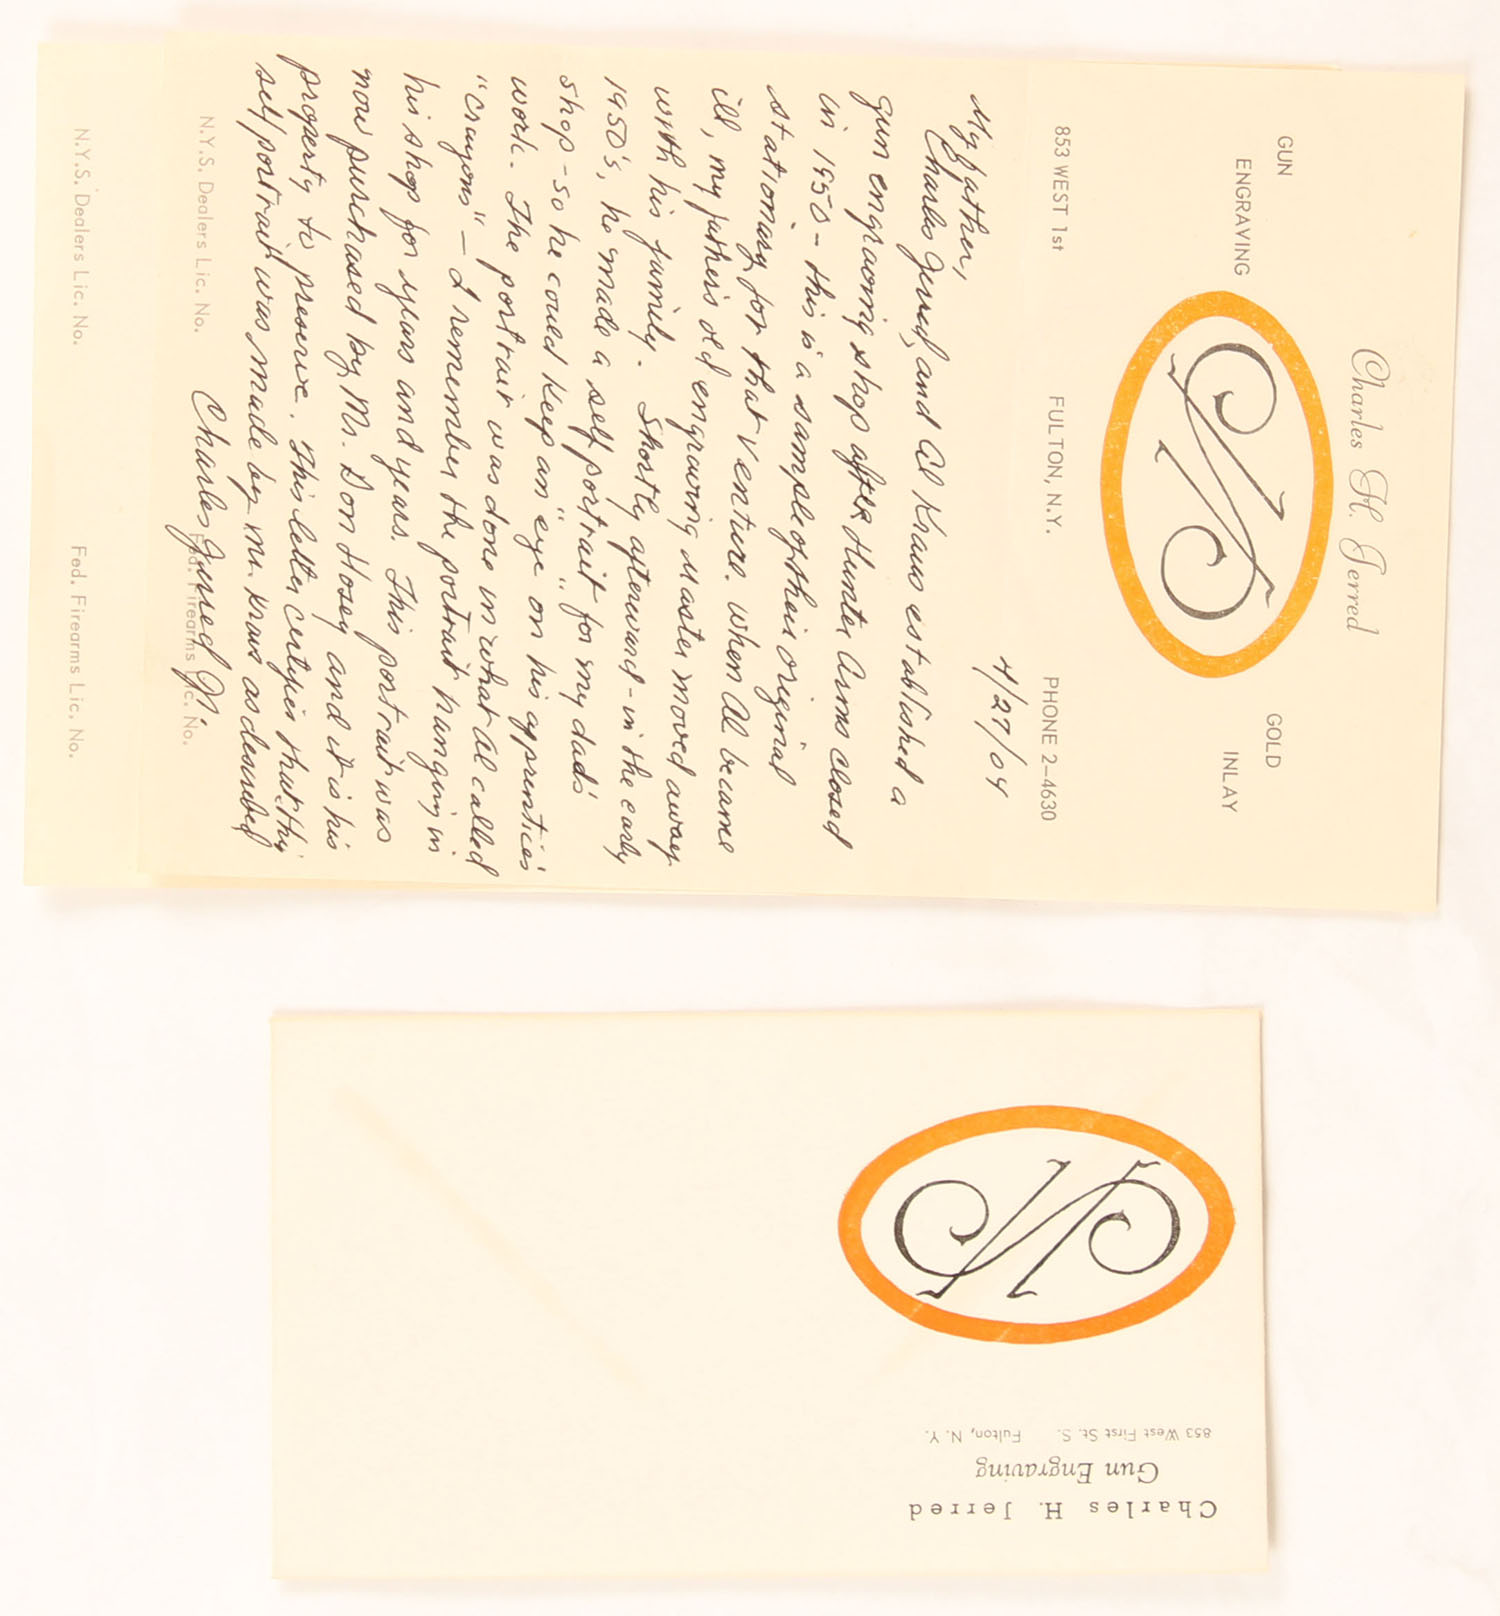 Charles H. Jerred
GUN
ENGRAVING
GOLD
INLAY
853 WEST 1st FULTON, N.Y. PHONE 2-4630
4/27/04
My father,
Charles Jerred, and Al Kraus established a
gun engraving shop after Hunter Arms closed
in 1950 - this is a sample of their original
stationary for that venture. When Al became
ill, my father's old engraving master moved away
with his family. Shortly afterward - in the early
1950's, he made a "self portrait" for my dad's
shop - so he could "keep an eye" on his apprentices'
work. The portrait was done in what Al called
"crayons" - I remember the portrait hanging in
his shop for years and years. This portrait was
now purchased by Mr. Don Hosey and it is his
property to preserve. This letter certifies that this
self portrait was made by Mr. Kraus as described
Charles Jerred Jr.
N.Y.S. Dealers Lic. No. Fed. Firearms Lic. No.
N.Y.S. Dealers Lic. No. Fed. Firearms Lic. No.
Charles H. Jerred
Gun Engraving
853 West First St. S. Fulton, N. Y.